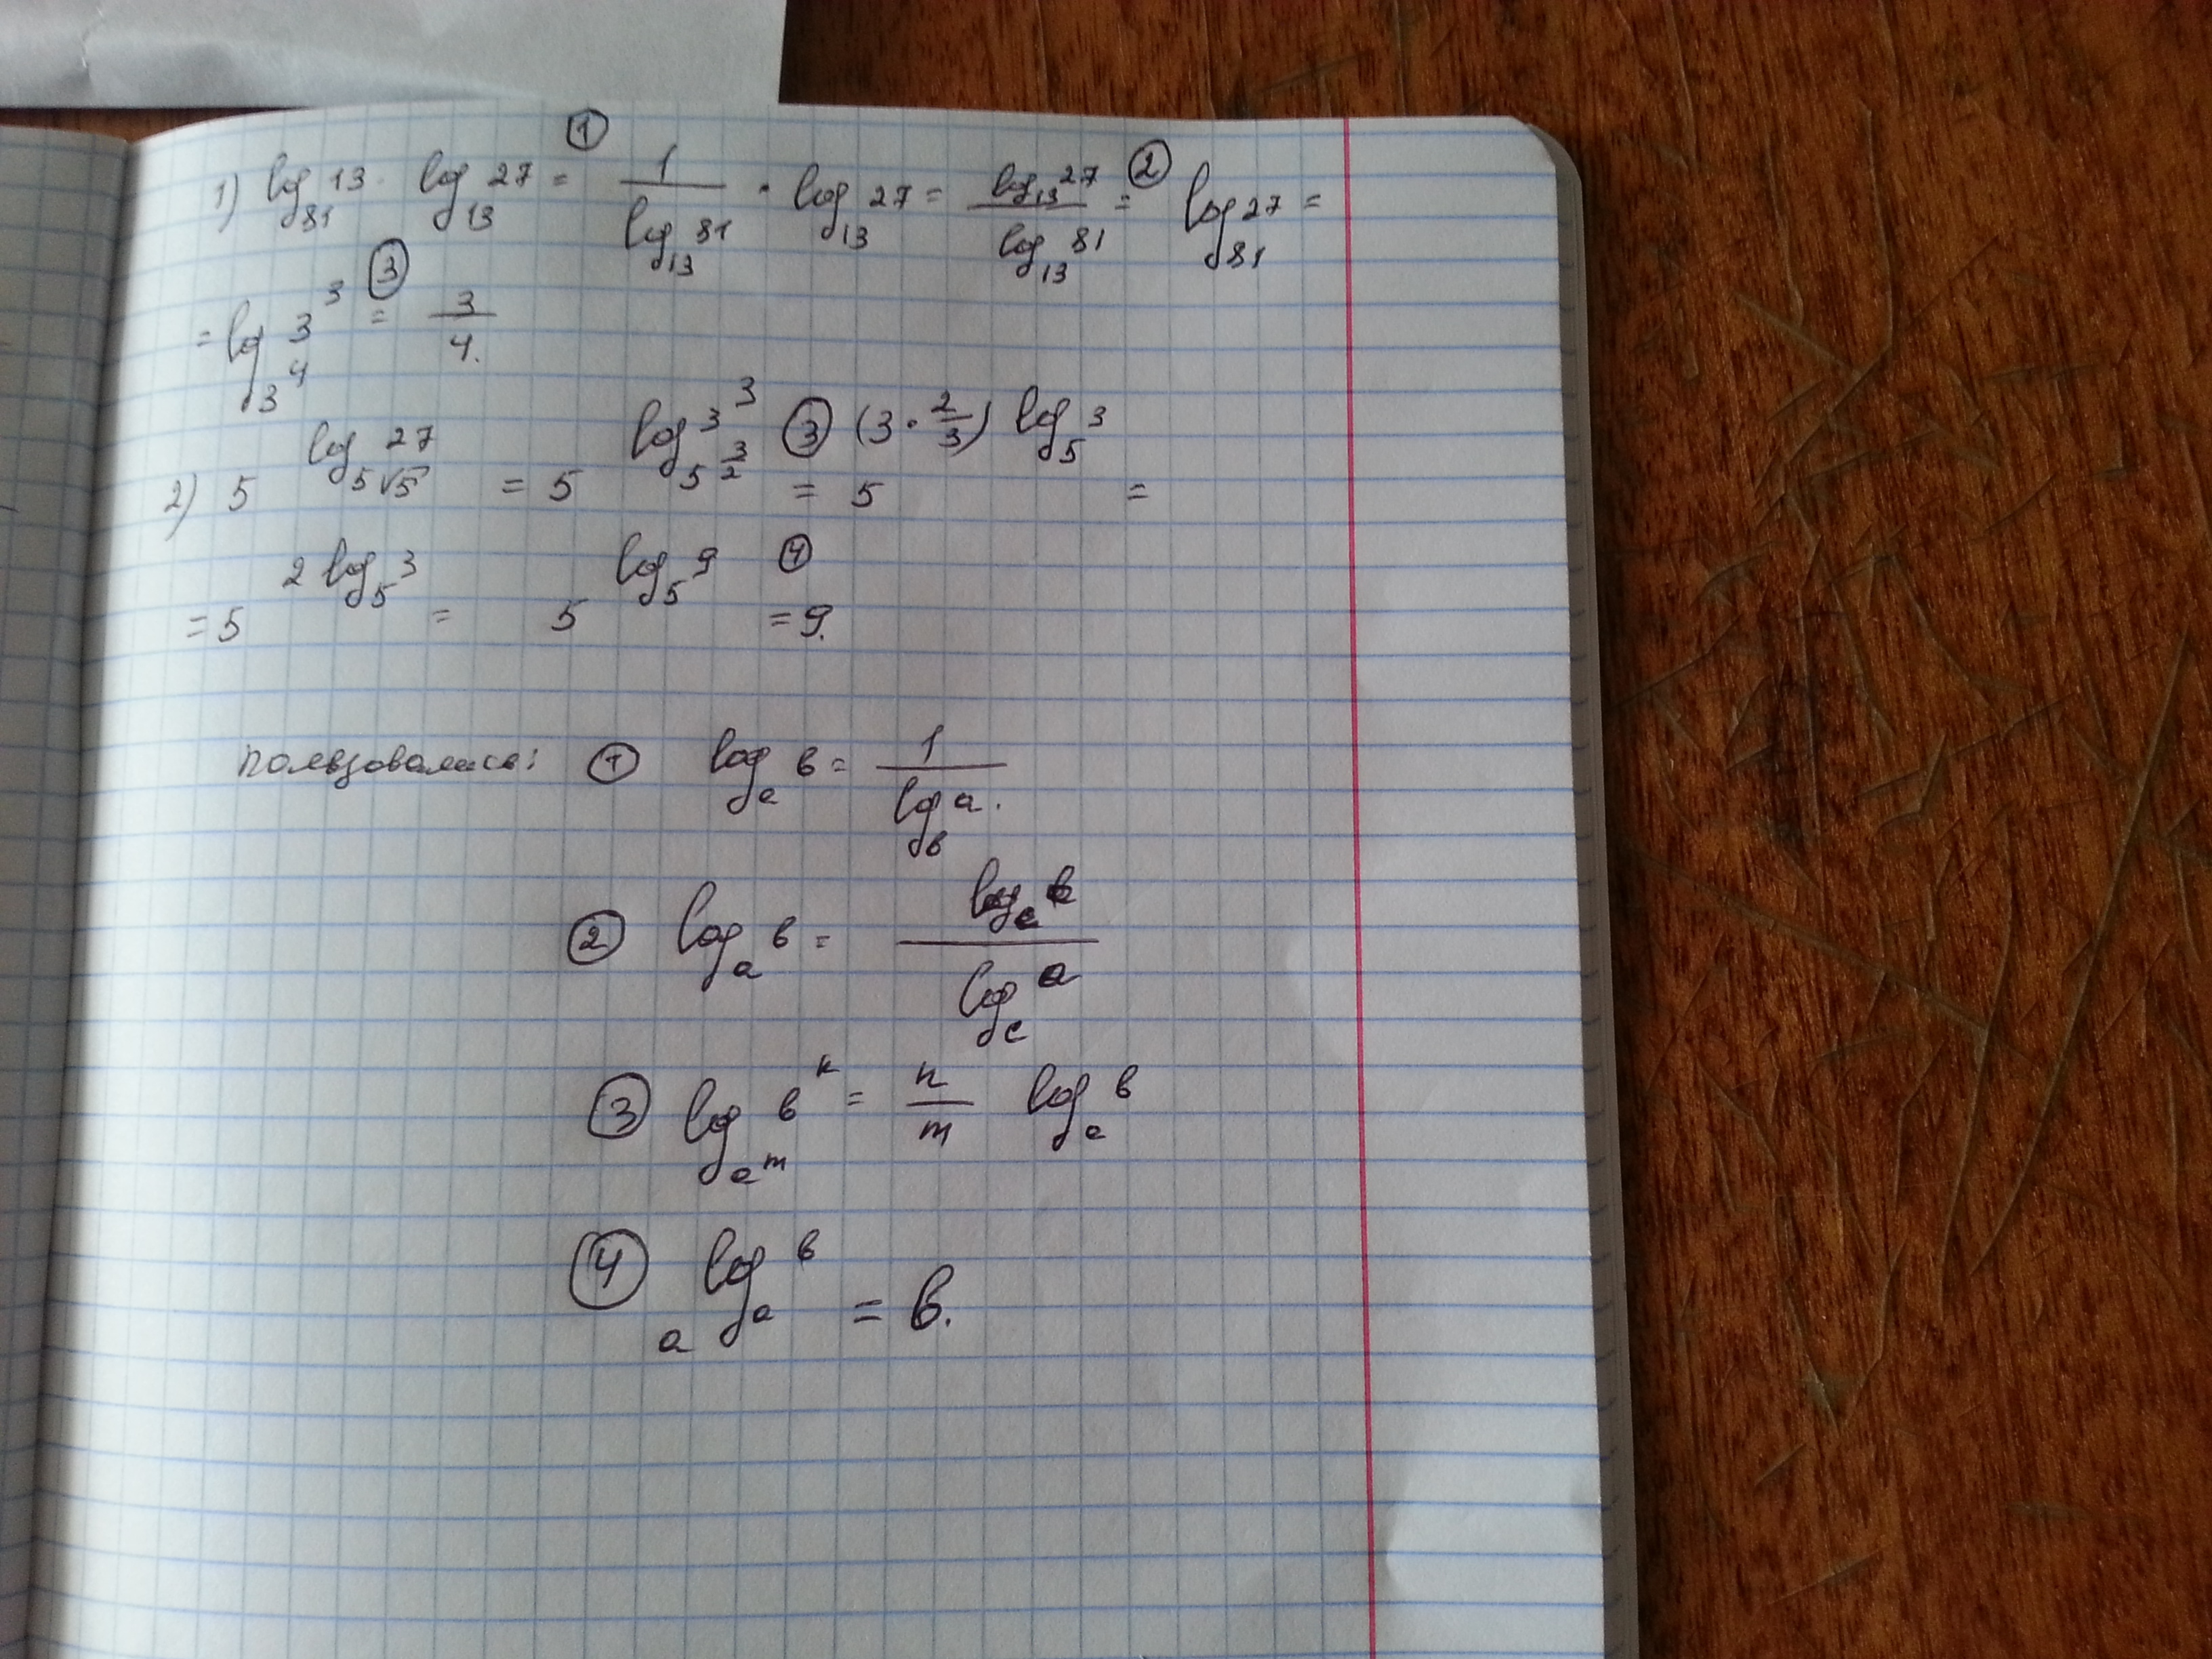 1) log₈₁ 13 · log₁₃ 27 =① 1/(log₁₃ 81) · log₁₃ 27 = (log₁₃ 27)/(log₁₃ 81) =② log₈₁ 27 =
= log_{3^4} 3^3 =③ 3/4.
2) 5^{log_{5√5} 27} = 5^{log_{5^{3/2}} 3^3} =③ 5^{(3 · 2/3) log_5 3} =
= 5^{2 log_5 3} = 5^{log_5 9} =④ 9.
пользовались: ① log_a в = 1/(log_в a).
② log_a в = (log_c в)/(log_c a)
③ log_{a^m} в^n = n/m log_a в
④ a^{log_a в} = в.